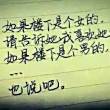 如果楼下是个女的.
请告诉她.我喜欢她
如果楼下是个男的.
...
也说吧.